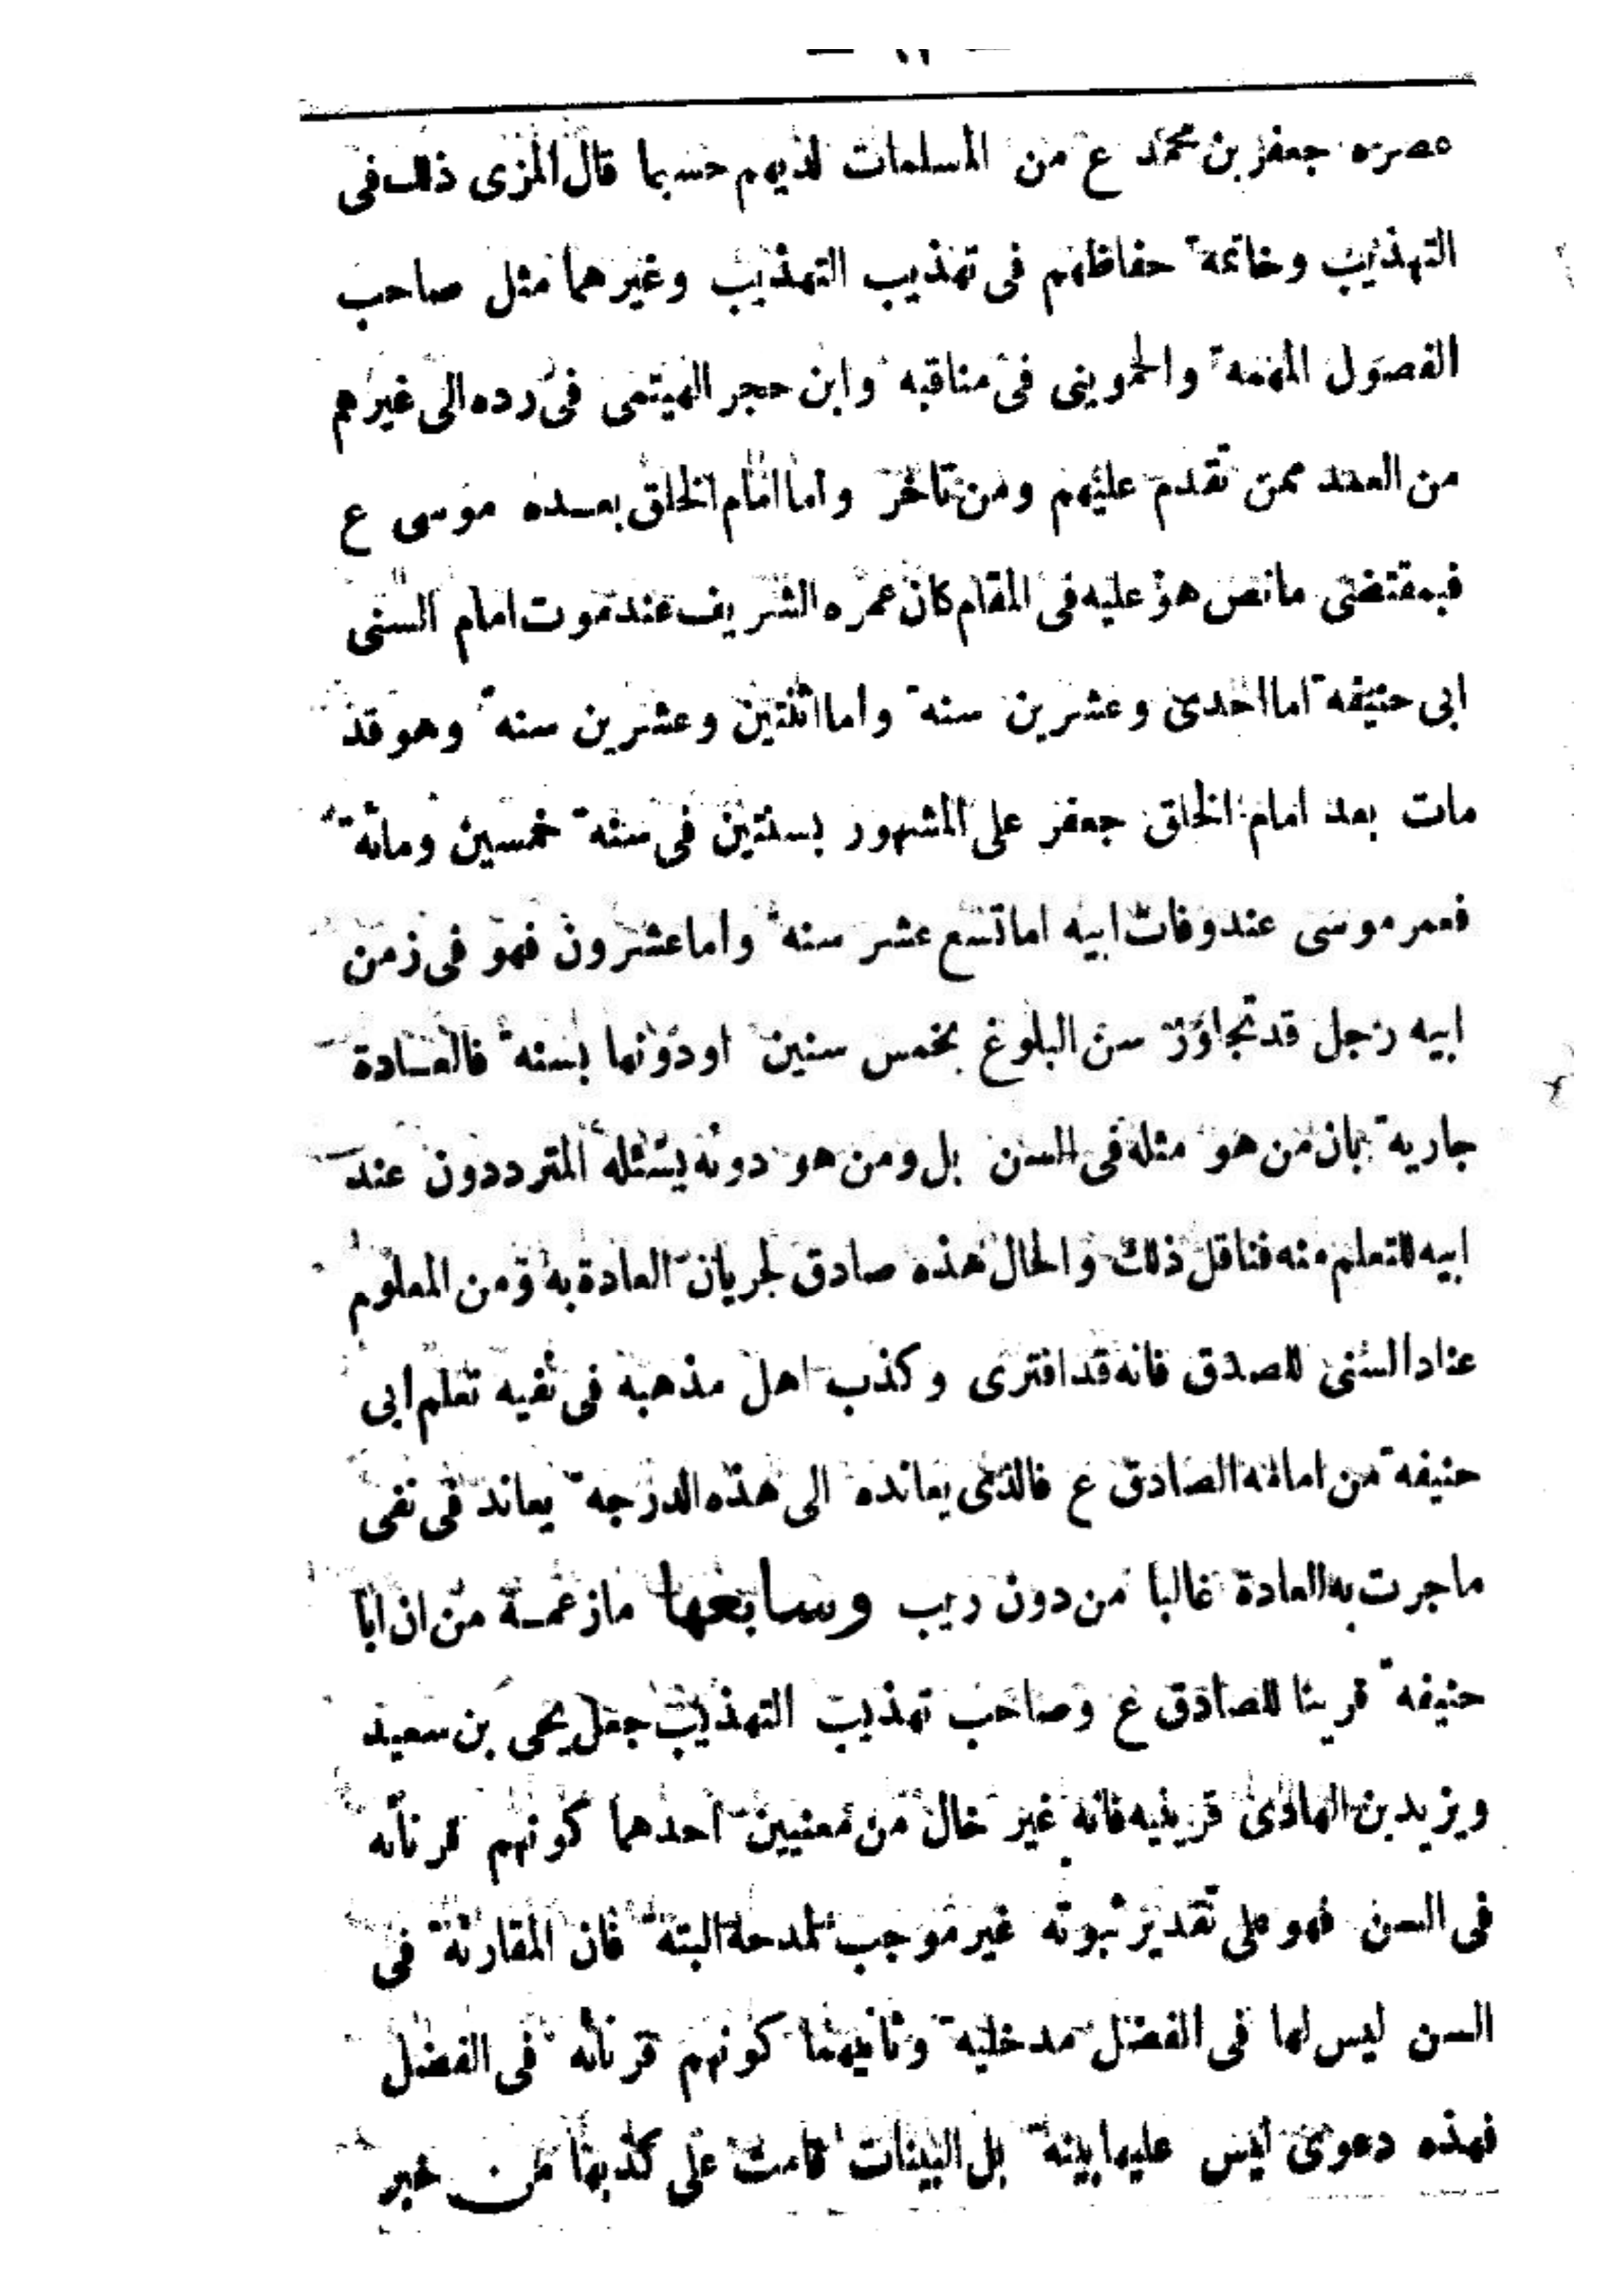 عصره جعفر بن محمد ع من المسلمات لديهم حسبما قال المزى ذلك فى
التهذيب وخاتمة حفاظهم فى تهذيب التهذيب وغيرهما مثل صاحب
الفصول المهمه والحموينى فى مناقبه وابن حجر الهيتمى فى رده الى غيرهم
من العدد ممن تقدم عليهم ومن تاخر واما امام الخلق بعده موسى ع
فبمقتضى مانص هو عليه فى المقام كان عمره الشريف عند موت امام السنى
ابى حنيفه اما احدى وعشرين سنه واما اثنتين وعشرين سنه وهو قد
مات بعد امام الخلق جعفر على المشهور بسنتين فى سنه خمسين ومائة
فعمر موسى عند وفات ابيه اما تسع عشر سنه واما عشرون فهو فى زمن
ابيه رجل قد تجاوز سن البلوغ بخمس سنين او دونها بسنه فالعادة
جاريه بان من هو مثله فى السن بل ومن هو دونه يسئله المترددون عند
ابيه للتعلم منه فناقل ذلك والحال هذه صادق لجريان العادة به ومن المعلوم
عناد السنى للصدق فانه قد افترى وكذب اهل مذهبه فى نفيه تعلم ابى
حنيفه من امامه الصادق ع فالذى يعانده الى هذه الدرجه يعاند فى نفى
ماجرت به العادة غالبا من دون ريب وسابعها مازعمه من ان ابا
حنيفه قرينا للصادق ع وصاحب تهذيب التهذيب جعل يحيى بن سعيد
ويزيد بن الهادى قرينيه فانه غير خال من معنيين احدهما كونهم قرنائه
فى السن فهو على تقدير ثبوته غير موجب لمدحة البته فان المقارنة فى
السن ليس لها فى الفضل مدخليه وثانيهما كونهم قرنائه فى الفضل
فهذه دعوى ليس عليها بينه بل البينات قامت على كذبها من خبر